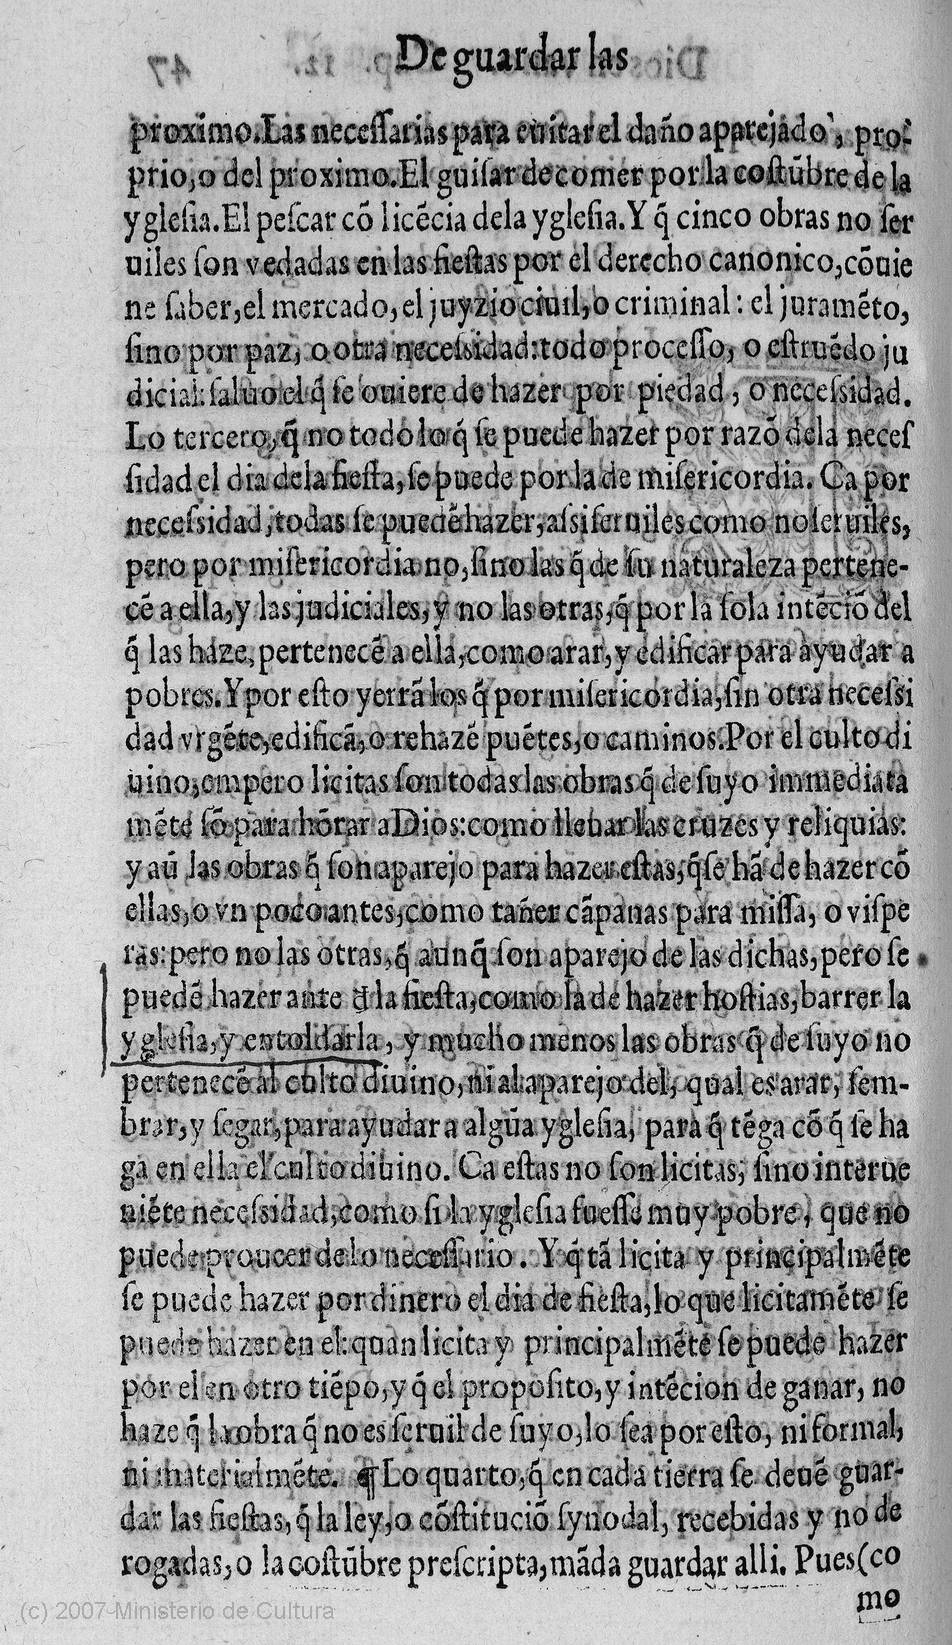 De guardar las
proximo. Las necessarias para euitar el daño aparejado, pro-
prio, o del proximo. El guisar de comer por la costũbre de la
yglesia. El pescar cõ licẽcia dela yglesia. Y q̃ cinco obras no ser
uiles son vedadas en las fiestas por el derecho canonico, cõuie
ne saber, el mercado, el juyzio ciuil, o criminal: el juramẽto,
sino por paz, o otra necessidad: todo processo, o estruẽdo ju
dicial: saluo el q̃ se ouiere de hazer por piedad, o necessidad.
Lo tercero, q̃ no todo lo q̃ se puede hazer por razõ dela neces
sidad el dia dela fiesta, se puede por la de misericordia. Ca por
necessidad, todas se puedẽ hazer, assi seruiles como no seruiles,
pero por misericordia no, sino las q̃ de su naturaleza pertene-
cẽ a ella, y las judiciales, y no las otras, q̃ por la sola intẽciõ del
q̃ las haze, pertenecẽ a ella, como arar, y edificar para ayudar a
pobres. Y por esto yerrã los q̃ por misericordia, sin otra necessi
dad vrgẽte, edificã, o rehazẽ puẽtes, o caminos. Por el culto di
uino, empero licitas son todas las obras q̃ de suyo immediata
mẽte sõ para hõrar a Dios: como lleuar las cruzes y reliquias:
y aũ las obras q̃ son aparejo para hazer estas, q̃ se hã de hazer cõ
ellas, o vn poco antes, como tañer cãpanas para missa, o vispe
ras: pero no las otras, q̃ aunq̃ son aparejo de las dichas, pero se
puedẽ hazer ante d̃ la fiesta, como la de hazer hostias, barrer la
yglesia, y entoldarla, y mucho menos las obras q̃ de suyo no
pertenecẽ al culto diuino, ni al aparejo del, qual es arar, sem-
brar, y segar, para ayudar a algũa yglesia, para q̃ tẽga cõ q̃ se ha
ga en ella el culto diuino. Ca estas no son licitas, sino interue
niẽte necessidad, como si la yglesia fuesse muy pobre, que no
puede proueer de lo necessario. Y q̃ tã licita y principalmẽte
se puede hazer por dinero el dia de fiesta, lo que licitamẽte se
puede hazer en el: quan licita y principalmẽte se puede hazer
por el en otro tiẽpo, y q̃ el proposito, y intẽcion de ganar, no
haze q̃ la obra q̃ no es seruil de suyo, lo sea por esto, ni formal,
ni materialmẽte. ¶ Lo quarto, q̃ en cada tierra se deuẽ guar-
dar las fiestas, q̃ la ley, o cõstituciõ synodal, recebidas y no de
rogadas, o la costũbre prescripta, mãda guardar alli. Pues (co
mo
(c) 2007 Ministerio de Cultura